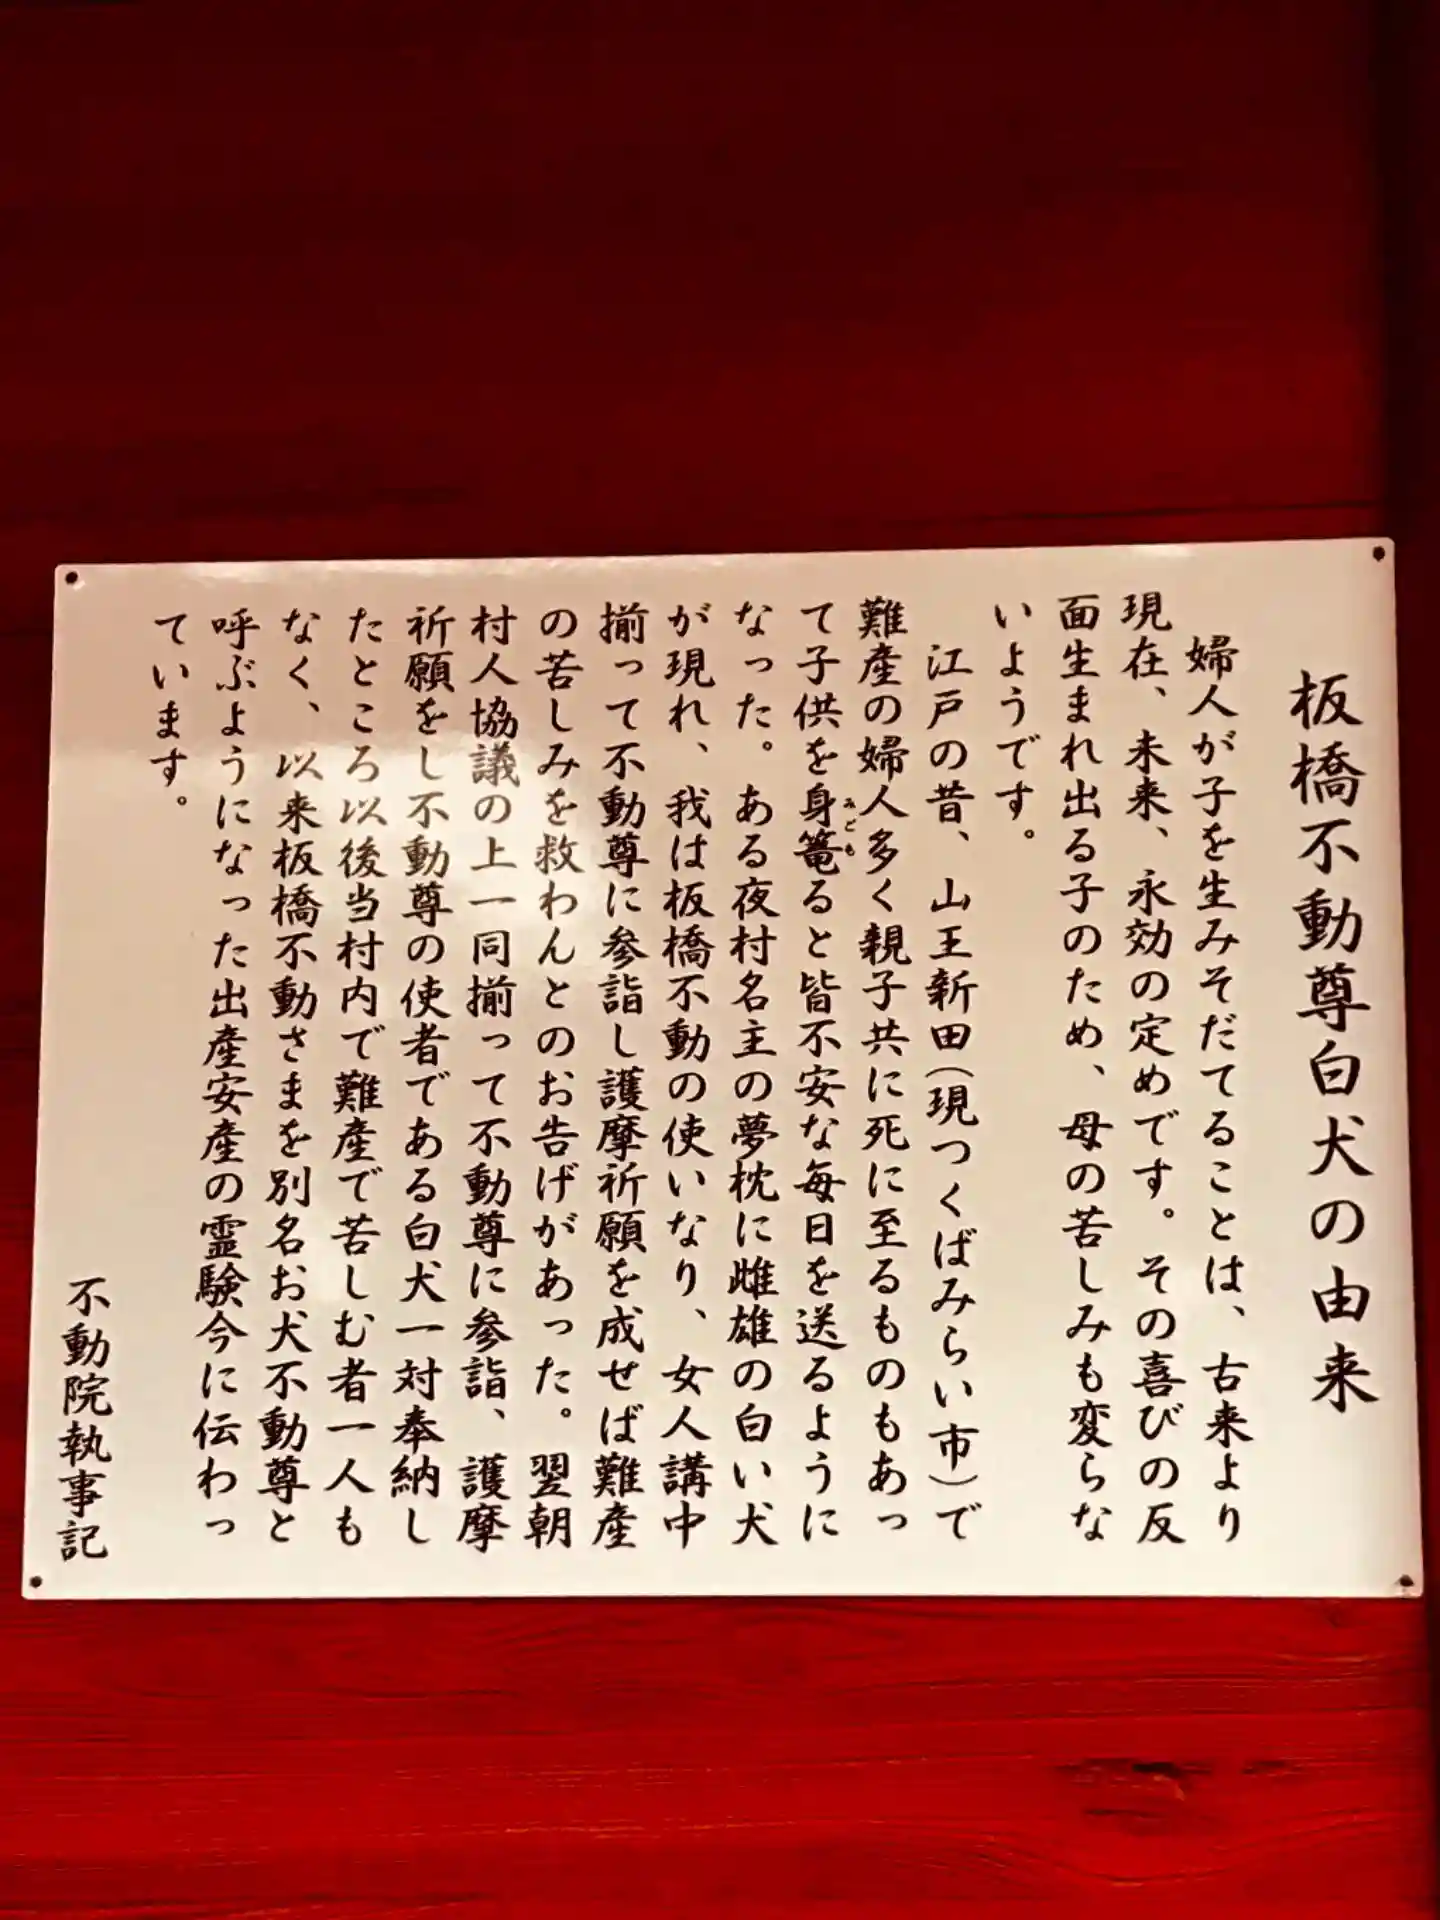 板橋不動尊白犬の由来
婦人が子を生みそだてることは、古来より
現在、未来、永効の定めです。その喜びの反
面生まれ出る子のため、母の苦しみも変らな
いようです。
江戸の昔、山王新田(現つくばみらい市)で
難産の婦人多く親子共に死に至るものもあっ
て子供を身篭ると皆不安な毎日を送るように
みごも
なった。ある夜村名主の夢枕に雌雄の白い犬
が現れ、我は板橋不動の使いなり、女人講中
揃って不動尊に参詣し護摩祈願を成せば難産
の苦しみを救わんとのお告げがあった。翌朝
村人協議の上一同揃って不動尊に参詣、護摩
祈願をし不動尊の使者である白犬一対奉納し
たところ以後当村内で難産で苦しむ者一人も
なく、以来板橋不動さまを別名お犬不動尊と
呼ぶようになった出産安産の霊験今に伝わっ
ています。
不動院執事記